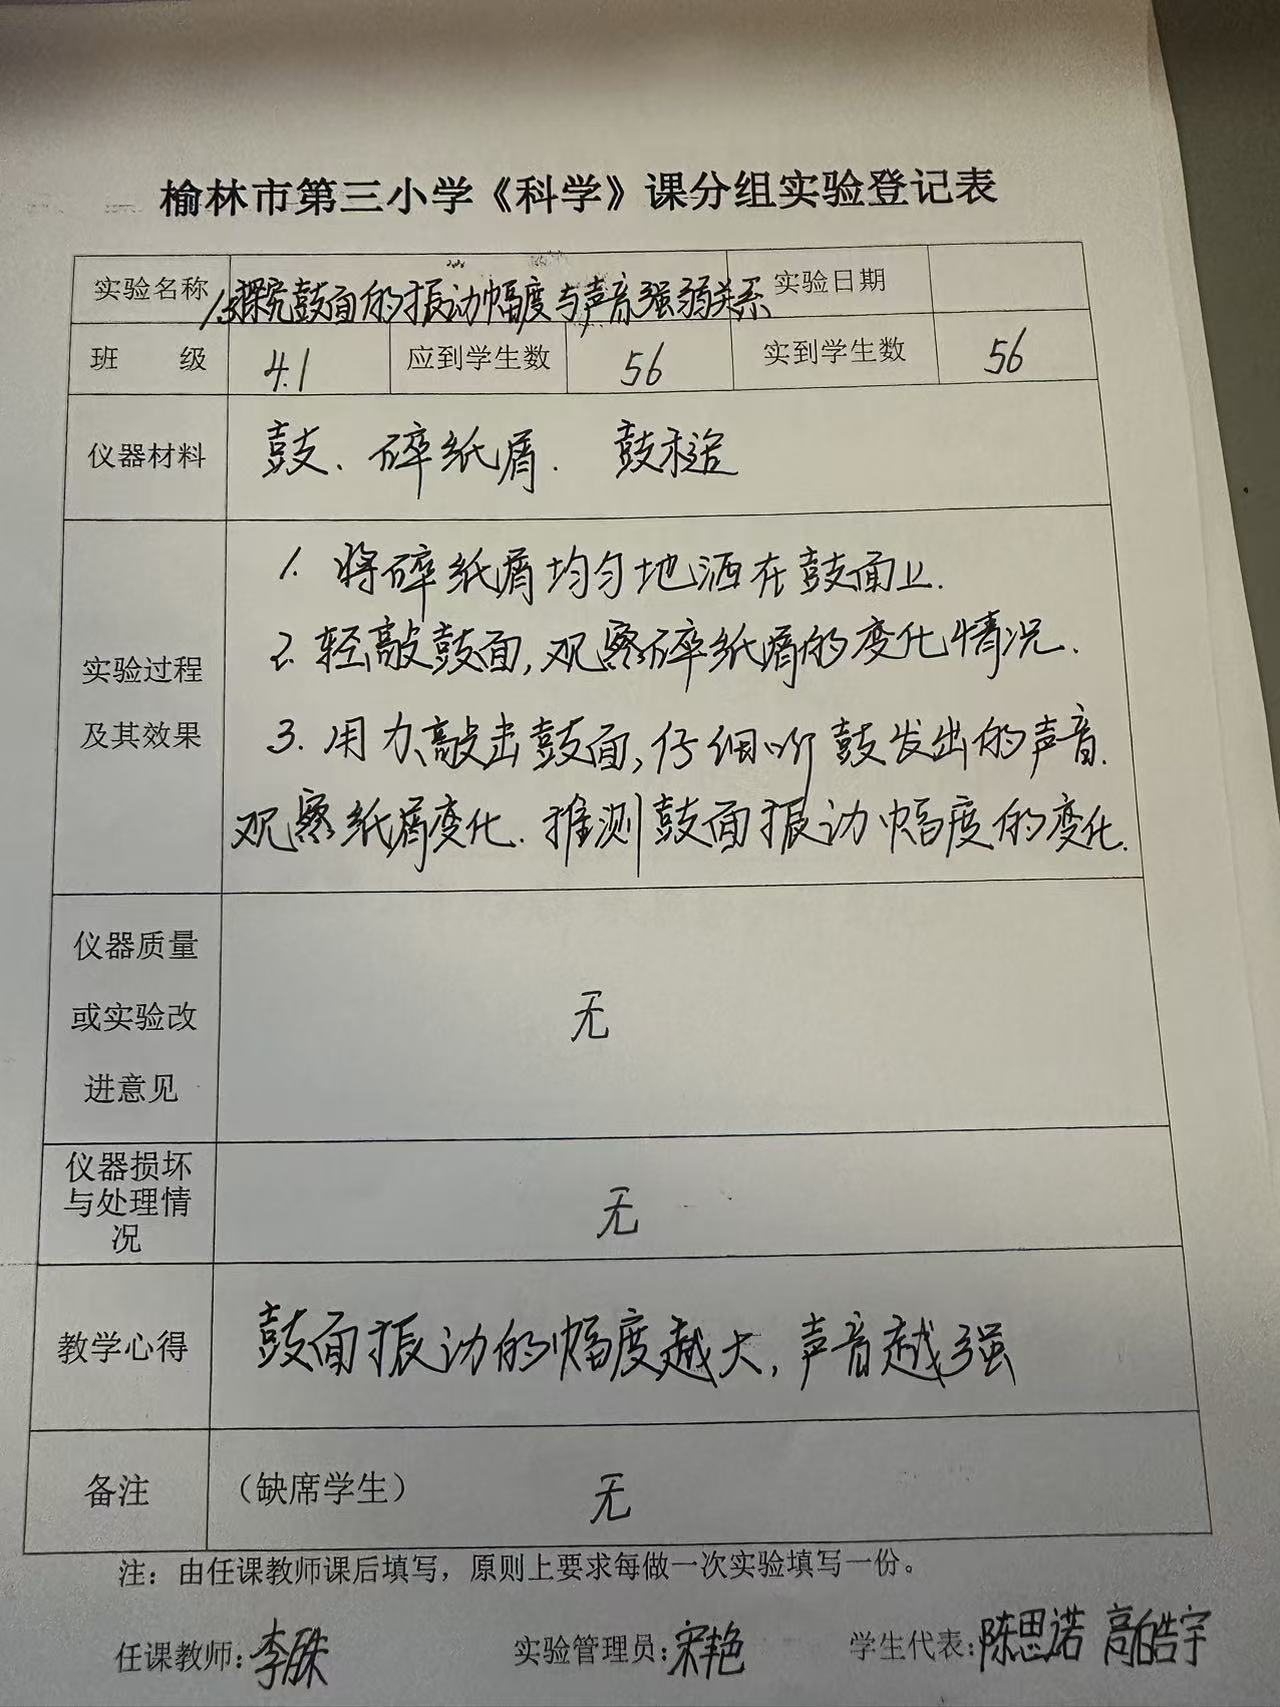 榆林市第三小学《科学》课分组实验登记表
实验名称 15探究鼓面的振动幅度与声音强弱关系 实验日期
班 级 4.1 应到学生数 56 实到学生数 56
仪器材料 鼓、碎纸屑. 鼓槌
实验过程
及其效果
1. 将碎纸屑均匀地洒在鼓面上.
2. 轻敲鼓面,观察碎纸屑的变化情况.
3. 用力敲击鼓面,仔细听鼓发出的声音.
观察纸屑变化.推测鼓面振动幅度的变化.
仪器质量
或实验改
进意见
无
仪器损坏
与处理情
况
无
教学心得 鼓面振动的幅度越大,声音越强
备注 (缺席学生) 无
注：由任课教师课后填写，原则上要求每做一次实验填写一份。
任课教师: 李 实验管理员: 宋艳 学生代表: 陈思诺 高皓宇